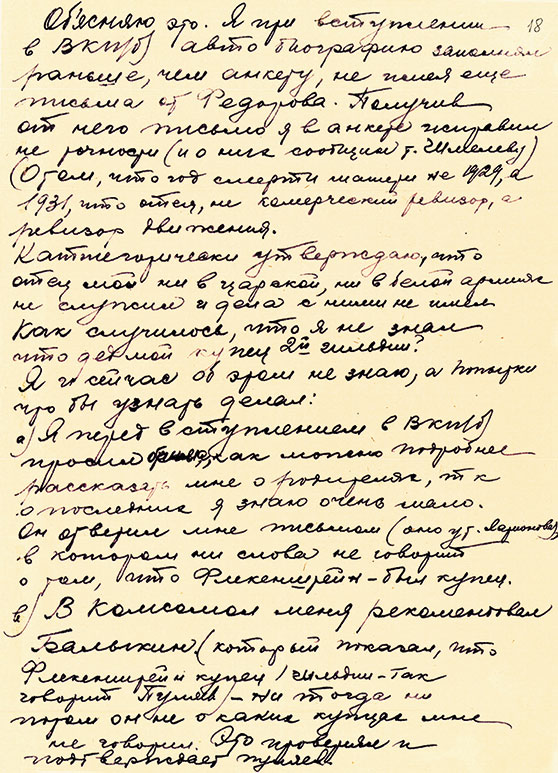 18
Об'ясняю это. Я при вступлении
в ВКП(б) авто биографию заполнял
раньше, чем анкету, не имея еще
письма от Федорова. Получив
от него письмо я в анкете исправил
не точности (и о них сообщил т. Шмелеву)
(О том, что год смерти матери не 1929, а
1931, что отец, не комерческий ревизор, а
ревизор движения.
Категорически утверждаю, что
отец мой ни в царской, ни в белой армиях
не служил и дела с ними не имел
Как случилось, что я не знал
что дед мой купец 2й гильдии?
Я и сейчас об этом не знаю, а попытки
что бы узнать делал:
а) Я перед вступлением в ВКП(б)
просил как можно подробнее
рассказать мне о родителях, т к
о последних я знаю очень мало.
Он ответил мне письмом (оно у т. Ларионова),
в котором ни слова не говорит
о том, что Флекенштейн - был купец.
в) В Комсомол меня рекомендовал
Балыкин (который показал, что
Флекенштейн купец 1 гильдии - так
говорит Пуляев) - ни тогда ни
потом он не о каких купцах мне
не говорил. Это проверял и
подтверждает Пуляев.